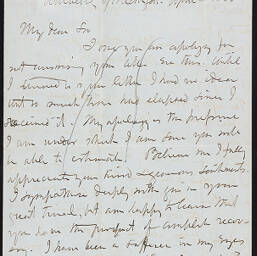 My dear Sir
I owe you an apology for
not answering your letter ere this. Until
I turned to your letter I had no idea
that so much time had elapsed since I
received it. My apology is the pressure
I am under which I am sure you will
be able to estimate. Believe me I fully
appreciate your kind expressions
I sympathise deeply with you in your
great trouble, but am happy to learn that
you have the prospect of complete recov-
ery. I have been a sufferer in my eyes